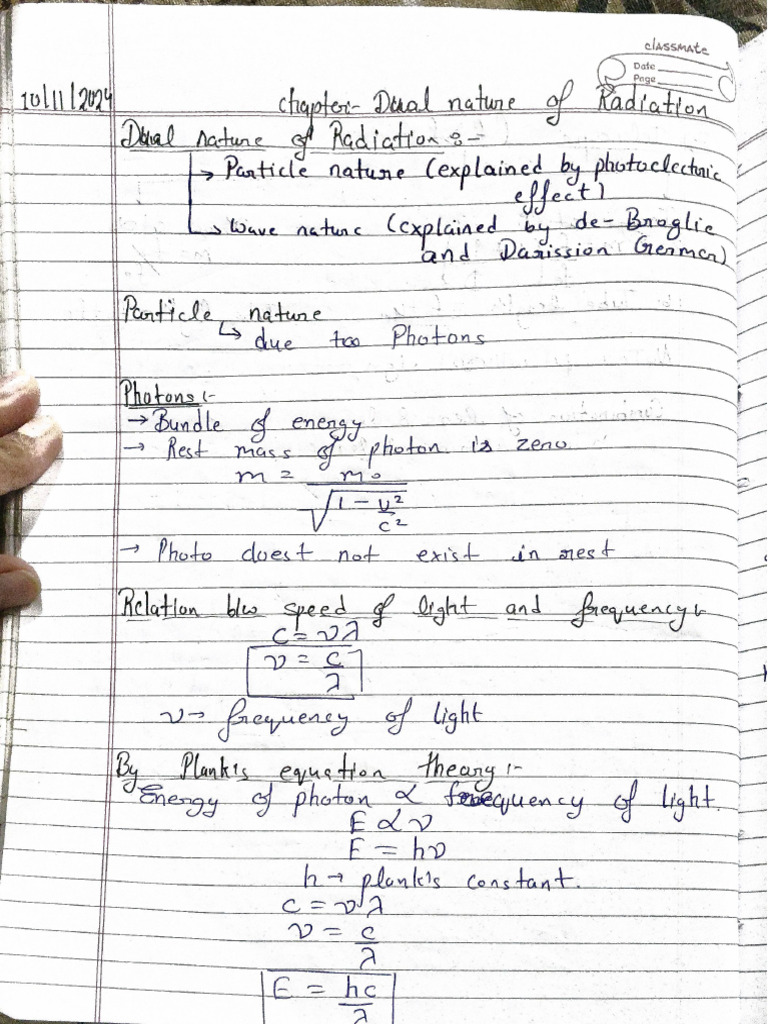 classmate
Date
Page
10/11/2024
chapter:- Dual nature of Radiation
Dual nature of Radiation :-
→ Particle nature (explained by photoelectric
effect)
→ wave nature (explained by de-Broglie
and Darission Germer)
Particle nature
↳ due too Photons
Photons :-
→ Bundle of energy
→ Rest mass of photon is zero
m = m₀
√1 - v²
c²
→ Photo doest not exist in rest
Relation b/w speed of light and frequency :-
c = νλ
ν = c
λ
ν → frequency of light
By Plank's equation theory :-
Energy of photon ∝ frequency of light.
E ∝ ν
E = hν
h → plank's constant.
c = νλ
ν = c
λ
E = hc
λ